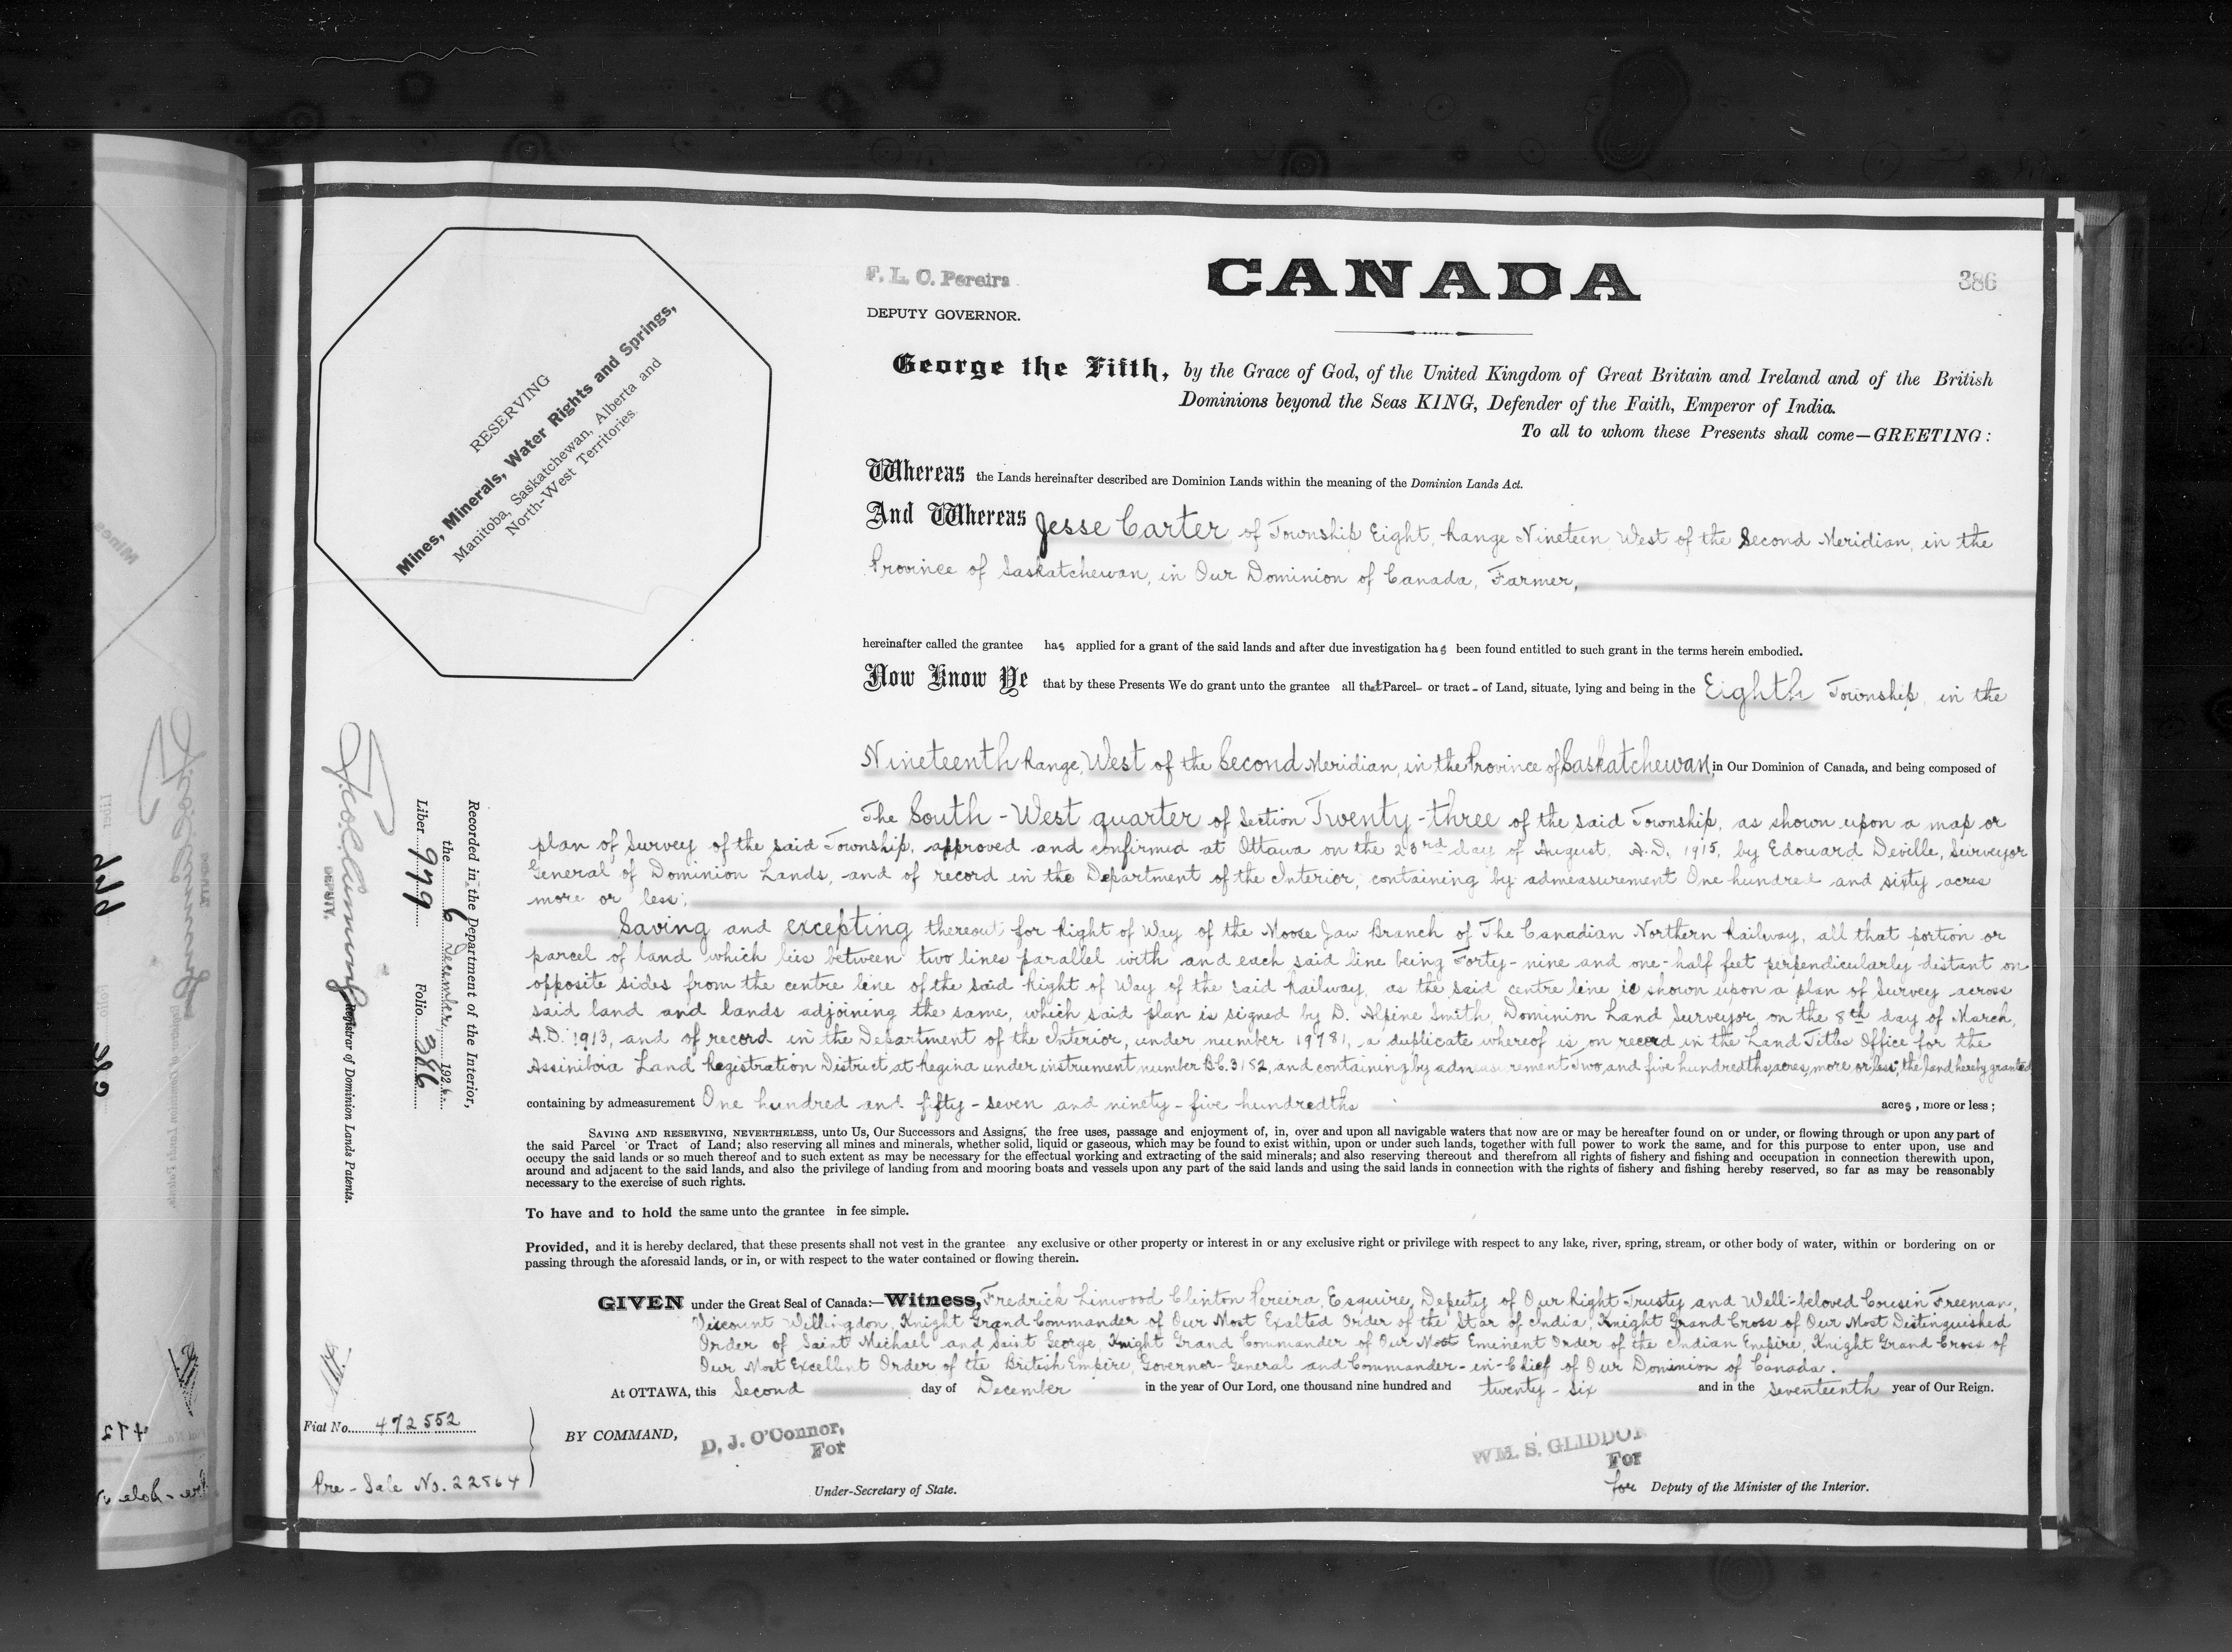 CANADA
386
F. L. C. Pereira
DEPUTY GOVERNOR.
George the Fifth, by the Grace of God, of the United Kingdom of Great Britain and Ireland and of the British
Dominions beyond the Seas KING, Defender of the Faith, Emperor of India.
To all to whom these Presents shall come—GREETING:
RESERVING
Mines, Minerals, Water Rights and Springs,
Manitoba, Saskatchewan, Alberta and
North-West Territories.
Whereas the Lands hereinafter described are Dominion Lands within the meaning of the Dominion Lands Act.
And Whereas Jesse Carter of Township Eight, Range Nineteen West of the Second Meridian, in the
Province of Saskatchewan, in Our Dominion of Canada, Farmer,
hereinafter called the grantee has applied for a grant of the said lands and after due investigation has been found entitled to such grant in the terms herein embodied.
Now Know Ye that by these Presents We do grant unto the grantee all that Parcel- or tract - of Land, situate, lying and being in the Eighth Township, in the
Nineteenth Range, West of the Second Meridian, in the Province of Saskatchewan, in Our Dominion of Canada, and being composed of
The South-West quarter of Section Twenty-three of the said Township, as shown upon a map or
plan of Survey of the said Township, approved and confirmed at Ottawa on the 23rd day of August, A.D. 1915, by Edouard Deville, Surveyor
General of Dominion Lands, and of record in the Department of the Interior, containing by admeasurement One hundred and sixty acres
more or less;
Saving and excepting thereout for Right of Way of the Moose Jaw Branch of The Canadian Northern Railway, all that portion or
parcel of land which lies between two lines parallel with and each said line being Forty-nine and one-half feet perpendicularly distant on
opposite sides from the centre line of the said Right of Way of the said Railway, as the said centre line is shown upon a plan of Survey across
said land and lands adjoining the same, which said plan is signed by D. Alpine Smith, Dominion Land Surveyor, on the 8th day of March,
A.D. 1913, and of record in the Department of the Interior, under number 19781, a duplicate whereof is on record in the Land Titles Office for the
Assiniboia Land Registration District at Regina under instrument number B.G. 3152, and containing by admeasurement Two and five hundredths acres, more or less; the land hereby granted
containing by admeasurement One hundred and fifty-seven and ninety-five hundredths acres, more or less;
SAVING AND RESERVING, NEVERTHELESS, unto Us, Our Successors and Assigns, the free uses, passage and enjoyment of, in, over and upon all navigable waters that now are or may be hereafter found on or under, or flowing through or upon any part of
the said Parcel or Tract of Land; also reserving all mines and minerals, whether solid, liquid or gaseous, which may be found to exist within, upon or under such lands, together with full power to work the same, and for this purpose to enter upon, use and
occupy the said lands or so much thereof and to such extent as may be necessary for the effectual working and extracting of the said minerals; and also reserving thereout and therefrom all rights of fishery and fishing and occupation in connection therewith upon,
around and adjacent to the said lands, and also the privilege of landing from and mooring boats and vessels upon any part of the said lands and using the said lands in connection with the rights of fishery and fishing hereby reserved, so far as may be reasonably
necessary to the exercise of such rights.
To have and to hold the same unto the grantee in fee simple.
Provided, and it is hereby declared, that these presents shall not vest in the grantee any exclusive or other property or interest in or any exclusive right or privilege with respect to any lake, river, spring, stream, or other body of water, within or bordering on or
passing through the aforesaid lands, or in, or with respect to the water contained or flowing therein.
GIVEN under the Great Seal of Canada:—Witness, Fredrick Linwood Clinton Pereira, Esquire, Deputy of Our Right Trusty and Well-beloved Cousin Freeman,
Viscount Willingdon, Knight Grand Commander of Our Most Exalted Order of the Star of India, Knight Grand Cross of Our Most Distinguished
Order of Saint Michael and Saint George, Knight Grand Commander of Our Most Eminent Order of the Indian Empire, Knight Grand Cross of
Our Most Excellent Order of the British Empire, Governor-General and Commander-in-Chief of Our Dominion of Canada.
At OTTAWA, this Second day of December in the year of Our Lord, one thousand nine hundred and twenty-six and in the seventeenth year of Our Reign.
BY COMMAND,
D. J. O'Connor,
For
Under-Secretary of State.
WM. S. GLIDDON
For
for Deputy of the Minister of the Interior.
Recorded in the Department of the Interior,
the 6 December 1926
Liber 979 Folio 386
DEPUTY. Registrar of Dominion Lands Patents.
Fiat No. 472552
Pre-Sale No. 22564